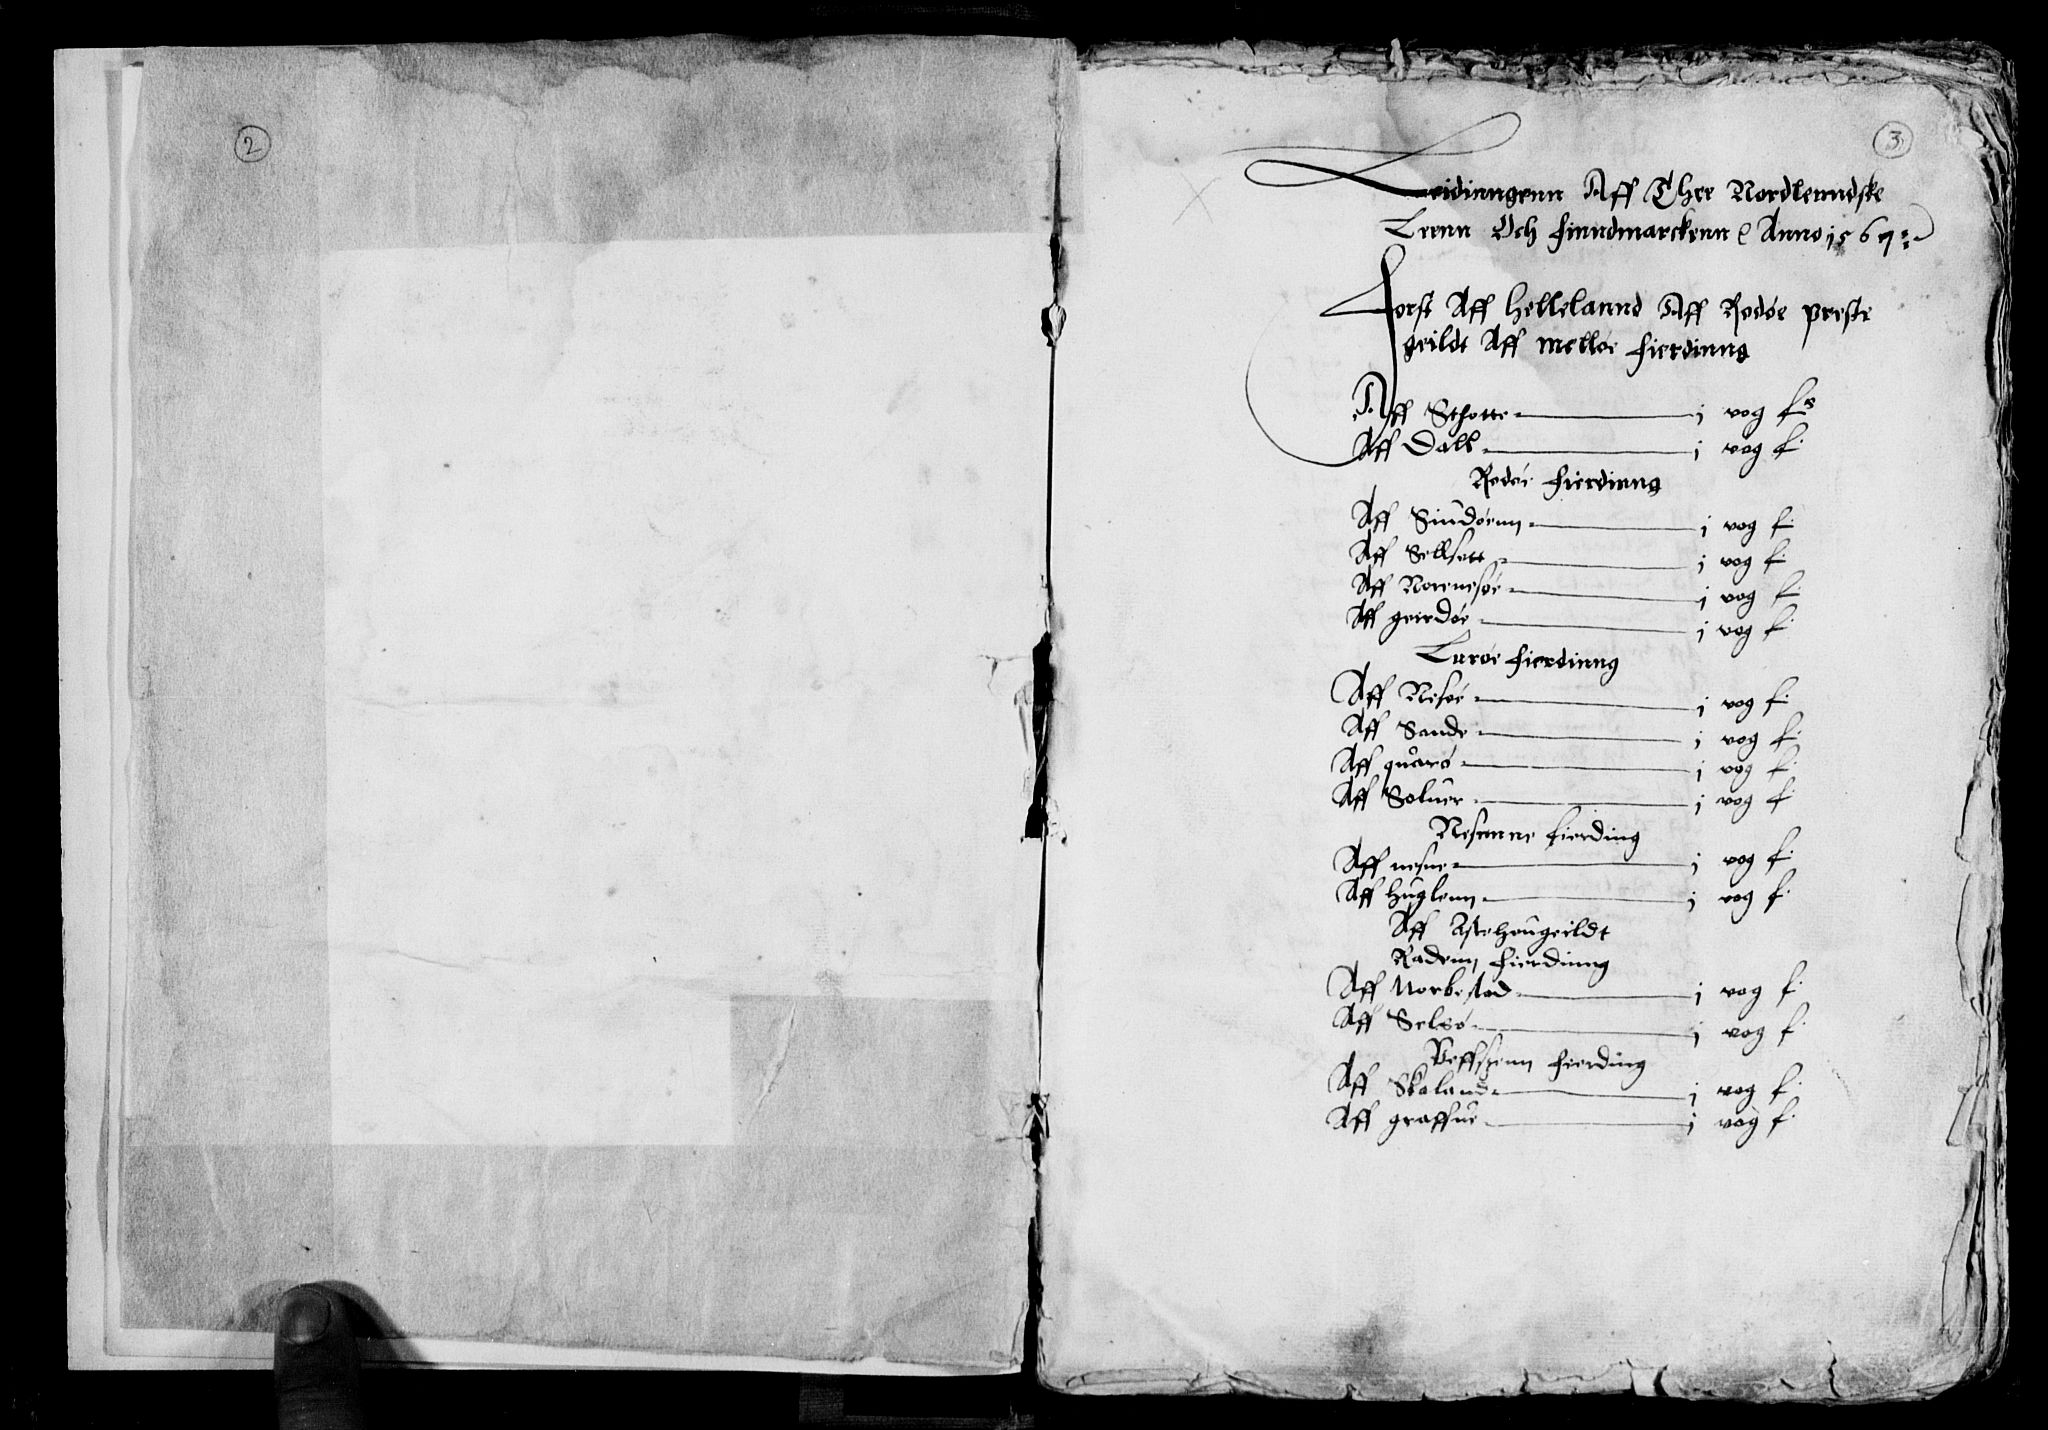 2
3
Leidinngenn Aff Thee Nordlenndske
Leenn Och finndmarckenn Anno 1567
Forst Aff Hellelannd Aff Rodøe preste
geildt Aff Melløe fierdinng
Aff Sthotte j vog f
Aff Dall j vog f
Rodøe fierdinng
Aff Sundøenn j vog f
Aff Sellsett j vog f
Aff Norenesøe j vog f
Aff geirdøe j vog f
Lurøe fierdinng
Aff Nesøe j vog f
Aff Sande j vog f
Aff quarø j vog f
Aff Soluer j vog f
Nesenne fierding
Aff nesne j vog f
Aff huglenn j vog f
Aff Astehougeildt
Radenn fierdinng
Aff Norbestad j vog f
Aff Selsø j vog f
Veffszenn fierding
Aff Skaland j vog f
Aff graffue j vog f